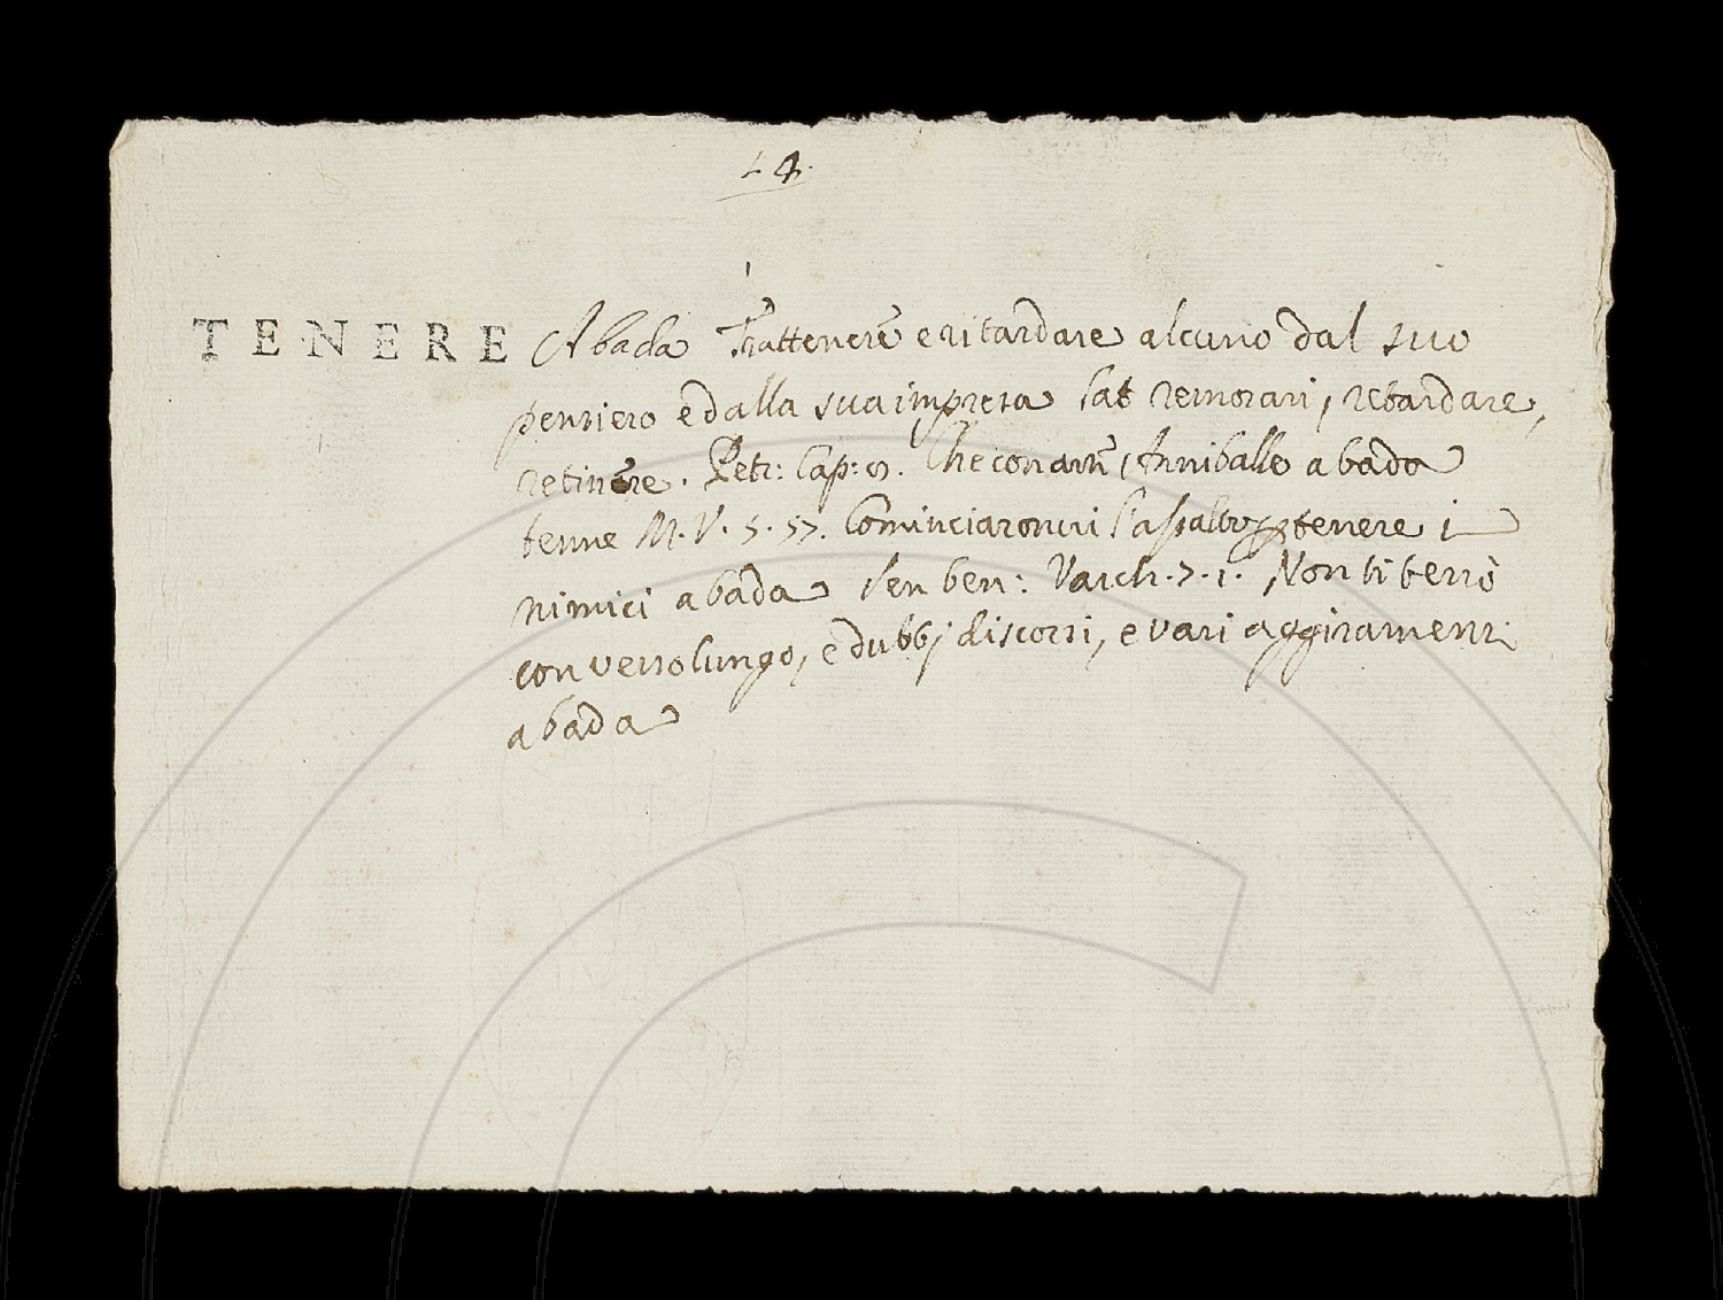 L 4.
TENERE Abada Trattenere e ritardare alcuno dal suo
pensiero e dalla sua impresa Lat remorari, retardare,
retinere. Petr: Cap: 9. Che con arte Anniballe a bada
tenne M. V. 5. 57. Cominciaronvi l'assalto p tenere i
nimici a bada Sen ben: Varch. 7. 1. Non ti terrò
con verso lungo, e dubbj discorsi, e vari aggiramenti
a bada